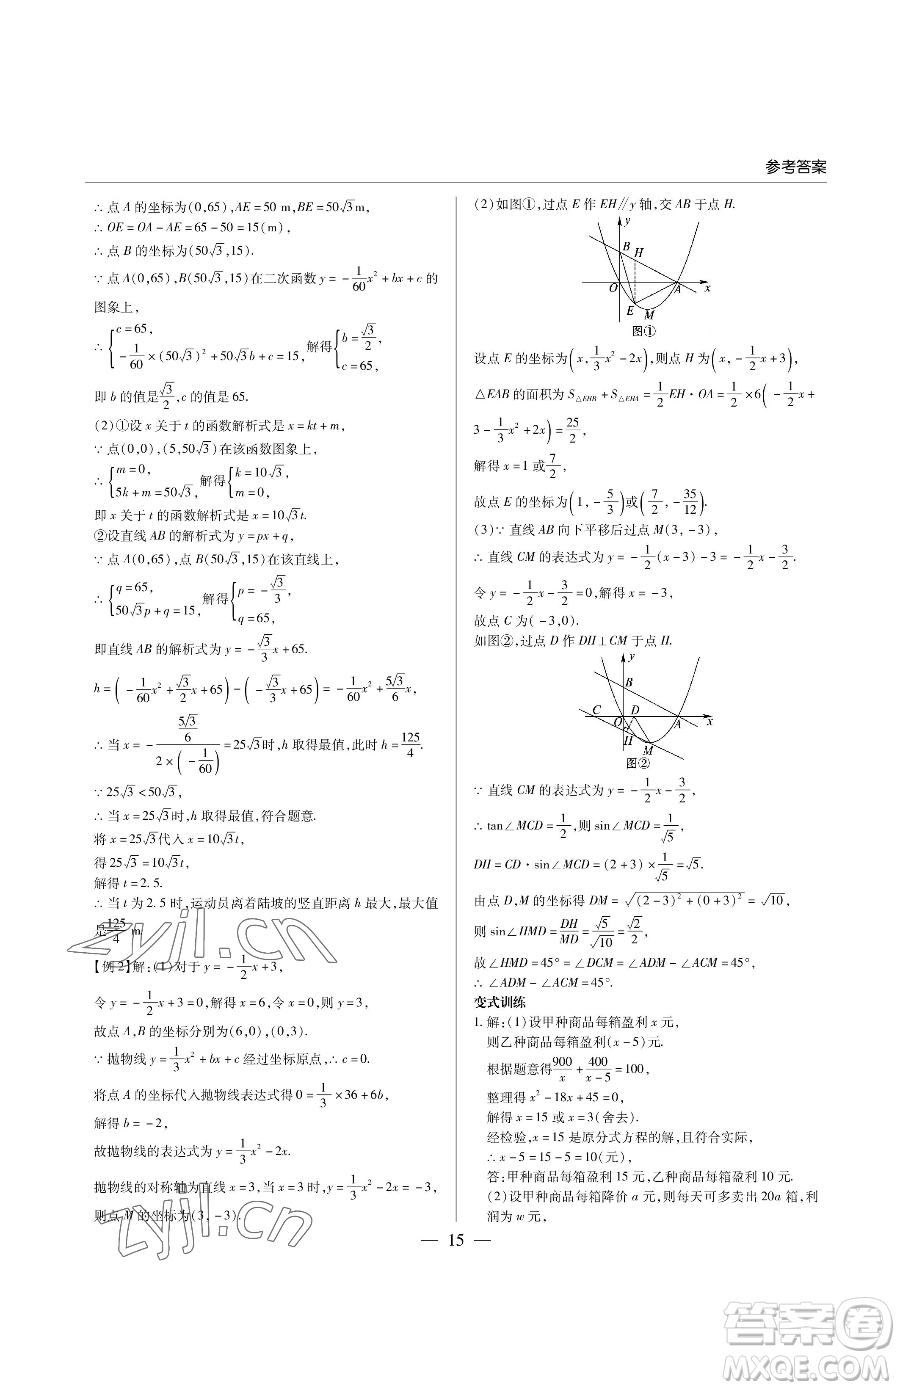 参考答案
∴点A的坐标为(0,65),AE=50 m,BE=50√3 m,
∴OE=OA-AE=65-50=15(m),
∴点B的坐标为(50√3,15).
∵点A(0,65),B(50√3,15)在二次函数y=-1/60x²+bx+c的
图象上,
∴{c=65, -1/60×(50√3)²+50√3b+c=15, 解得{b=√3/2, c=65.
即b的值是√3/2,c的值是65.
(2)①设x关于t的函数解析式是x=kt+m,
∵点(0,0),(5,50√3)在该函数图象上,
∴{m=0, 5k+m=50√3, 解得{k=10√3, m=0,
即x关于t的函数解析式是x=10√3t.
②设直线AB的解析式为y=px+q,
∵点A(0,65),点B(50√3,15)在该直线上,
∴{q=65, 50√3p+q=15, 解得{p=-√3/3, q=65,
即直线AB的解析式为y=-√3/3x+65.
h=(-1/60x²+√3/2x+65)-(-√3/3x+65)=-1/60x²+5√3/6x,
∴当x=-(5√3/6)/(2×(-1/60))=25√3时,h取得最值,此时h=125/4.
∵25√3<50√3,
∴当x=25√3时,h取得最值,符合题意.
将x=25√3代入x=10√3t,
得25√3=10√3t,
解得t=2.5.
∴当t为2.5时,运动员离着陆坡的竖直距离h最大,最大值
是125/4 m.
【例2】解:(1)对于y=-1/2x+3,
令y=-1/2x+3=0,解得x=6,令x=0,则y=3,
故点A,B的坐标分别为(6,0),(0,3).
∵抛物线y=1/3x²+bx+c经过坐标原点,∴c=0.
将点A的坐标代入抛物线表达式得0=1/3×36+6b,
解得b=-2,
故抛物线的表达式为y=1/3x²-2x.
抛物线的对称轴为直线x=3,当x=3时,y=1/3x²-2x=-3,
则点M的坐标为(3,-3).
(2)如图①,过点E作EH∥y轴,交AB于点H.
y
B H
O A x
E M
图①
设点E的坐标为(x,1/3x²-2x),则点H为(x,-1/2x+3),
△EAB的面积为S△EHB+S△EHA=1/2EH·OA=1/2×6(-1/2x+
3-1/3x²+2x)=25/2,
解得x=1或7/2,
故点E的坐标为(1,-5/3)或(7/2,-35/12).
(3)∵直线AB向下平移后过点M(3,-3),
∴直线CM的表达式为y=-1/2(x-3)-3=-1/2x-3/2.
令y=-1/2x-3/2=0,解得x=-3,
故点C为(-3,0).
如图②,过点D作DH⊥CM于点H.
y
B
C O D A x
H M
图②
∵直线CM的表达式为y=-1/2x-3/2,
∴tan∠MCD=1/2,则sin∠MCD=1/√5,
DH=CD·sin∠MCD=(2+3)×1/√5=√5.
由点D,M的坐标得DM=√((2-3)²+(0+3)²)=√10,
则sin∠HMD=DH/MD=√5/√10=√2/2,
故∠HMD=45°=∠DCM=∠ADM-∠ACM=45°,
∴∠ADM-∠ACM=45°.
变式训练
1.解:(1)设甲种商品每箱盈利x元,
则乙种商品每箱盈利(x-5)元.
根据题意得900/x+400/(x-5)=100,
整理得x²-18x+45=0,
解得x=15或x=3(舍去).
经检验,x=15是原分式方程的解,且符合实际,
∴x-5=15-5=10(元),
答:甲种商品每箱盈利15元,乙种商品每箱盈利10元.
(2)设甲种商品每箱降价a元,则每天可多卖出20a箱,利
润为w元,
— 15 —
zyjl.cn
zyjl.cn
答案圈
MXQE.COM